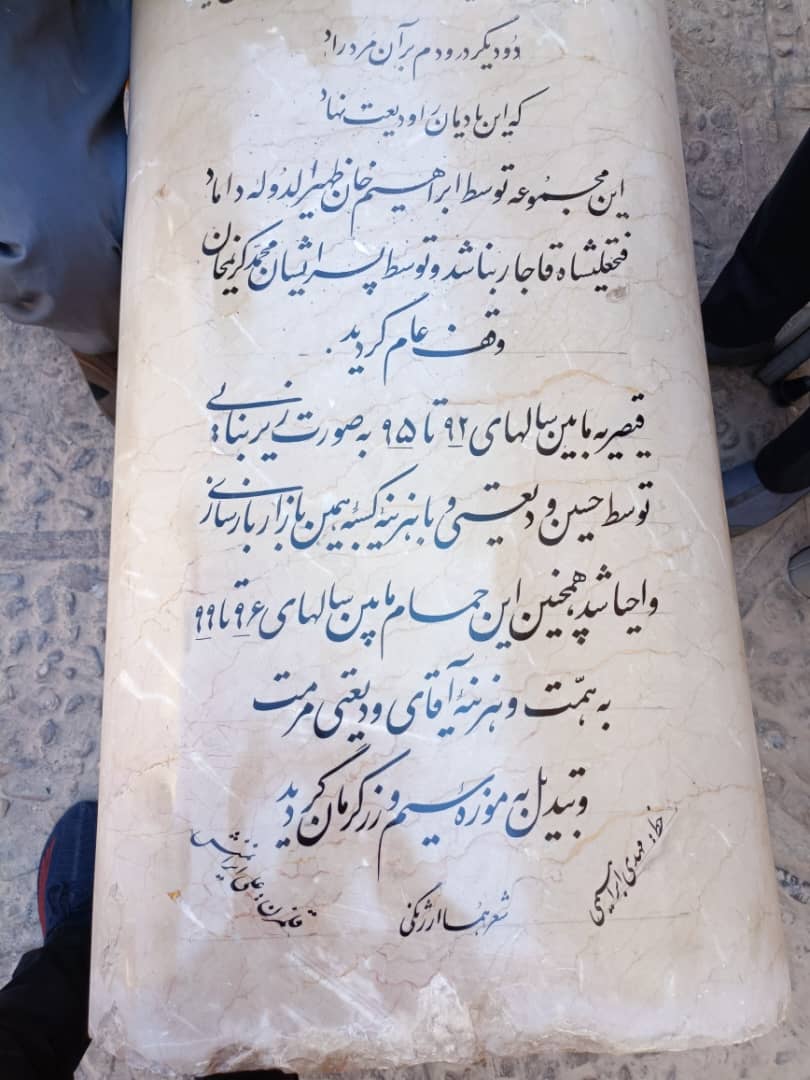 دو دیگر درودم بر آن مرد راد
که این یادمان را ودیعت نهاد
این مجموعه توسط ابراهیم خان ظهیرالدوله داماد
فتحعلیشاه قاجار بنا شد و توسط پسرایشان محمد کریمخان
وقف عام گردید.
قیصریه مابین سالهای ۹۲ تا ۹۵ به صورت زیربنایی
توسط حسین ودیعتی و با هزینهٔ کسبهٔ همین بازار بازسازی
و احیا شد همچنین این حمام مابین سالهای ۹۶ تا ۹۹
به همّت و هزینهٔ آقای ودیعتی مرمت
و تبدیل به موزهٔ سیم و زر کرمان گردید
خط: مهدی ابراهیمی
شعر هما ارژنگی
قلمزن: علی ایرانمنش